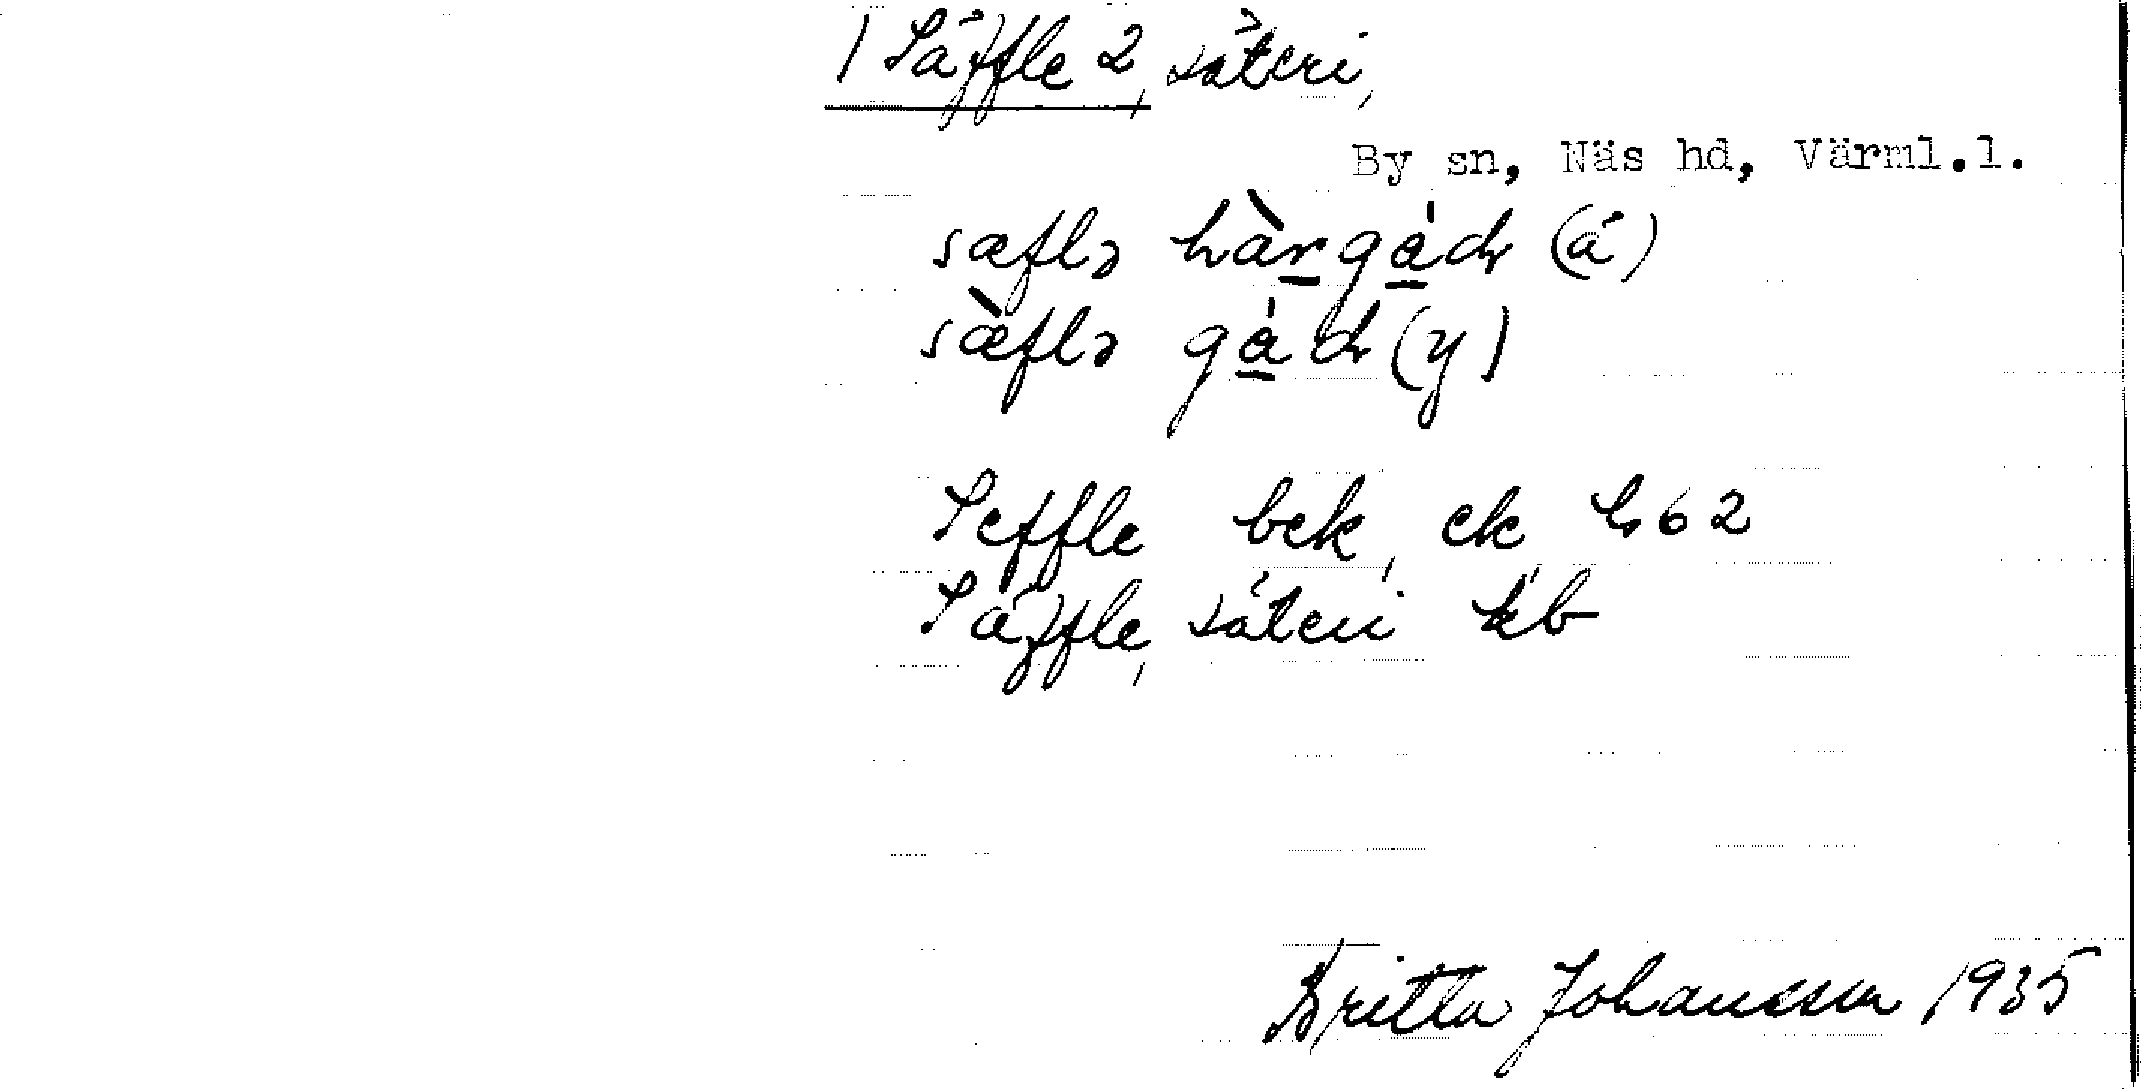 1 Säffle 2, säteri,
By sn, Näs hd, Värml.l.
sæflə hæ̀rgàɖ (ä)
sæ̀flə gàɖ (y)
Seffle bek, ek h 62
Säffle, säteri kb
Britta Johansson 1935